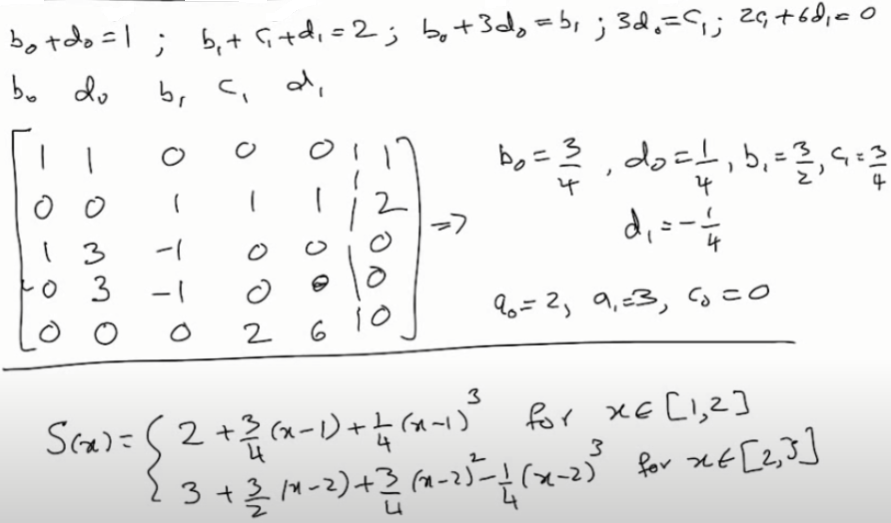 b₀+d₀=1 ; b₁+c₁+d₁=2 ; b₀+3d₀=b₁ ; 3d₀=c₁ ; 2c₁+6d₁=0
b₀ d₀ b₁ c₁ d₁
1 1 0 0 0 | 1
0 0 1 1 1 | 2
1 3 -1 0 0 | 0
0 3 -1 0 0 | 0
0 0 0 2 6 | 0
=> b₀=3/4 , d₀=1/4 , b₁=3/2 , c₁=3/4
d₁=-1/4
a₀=2, a₁=3, c₀=0
S(x)= { 2+3/4(x-1)+1/4(x-1)³ for x∈[1,2]
3+3/2(x-2)+3/4(x-2)²-1/4(x-2)³ for x∈[2,3]